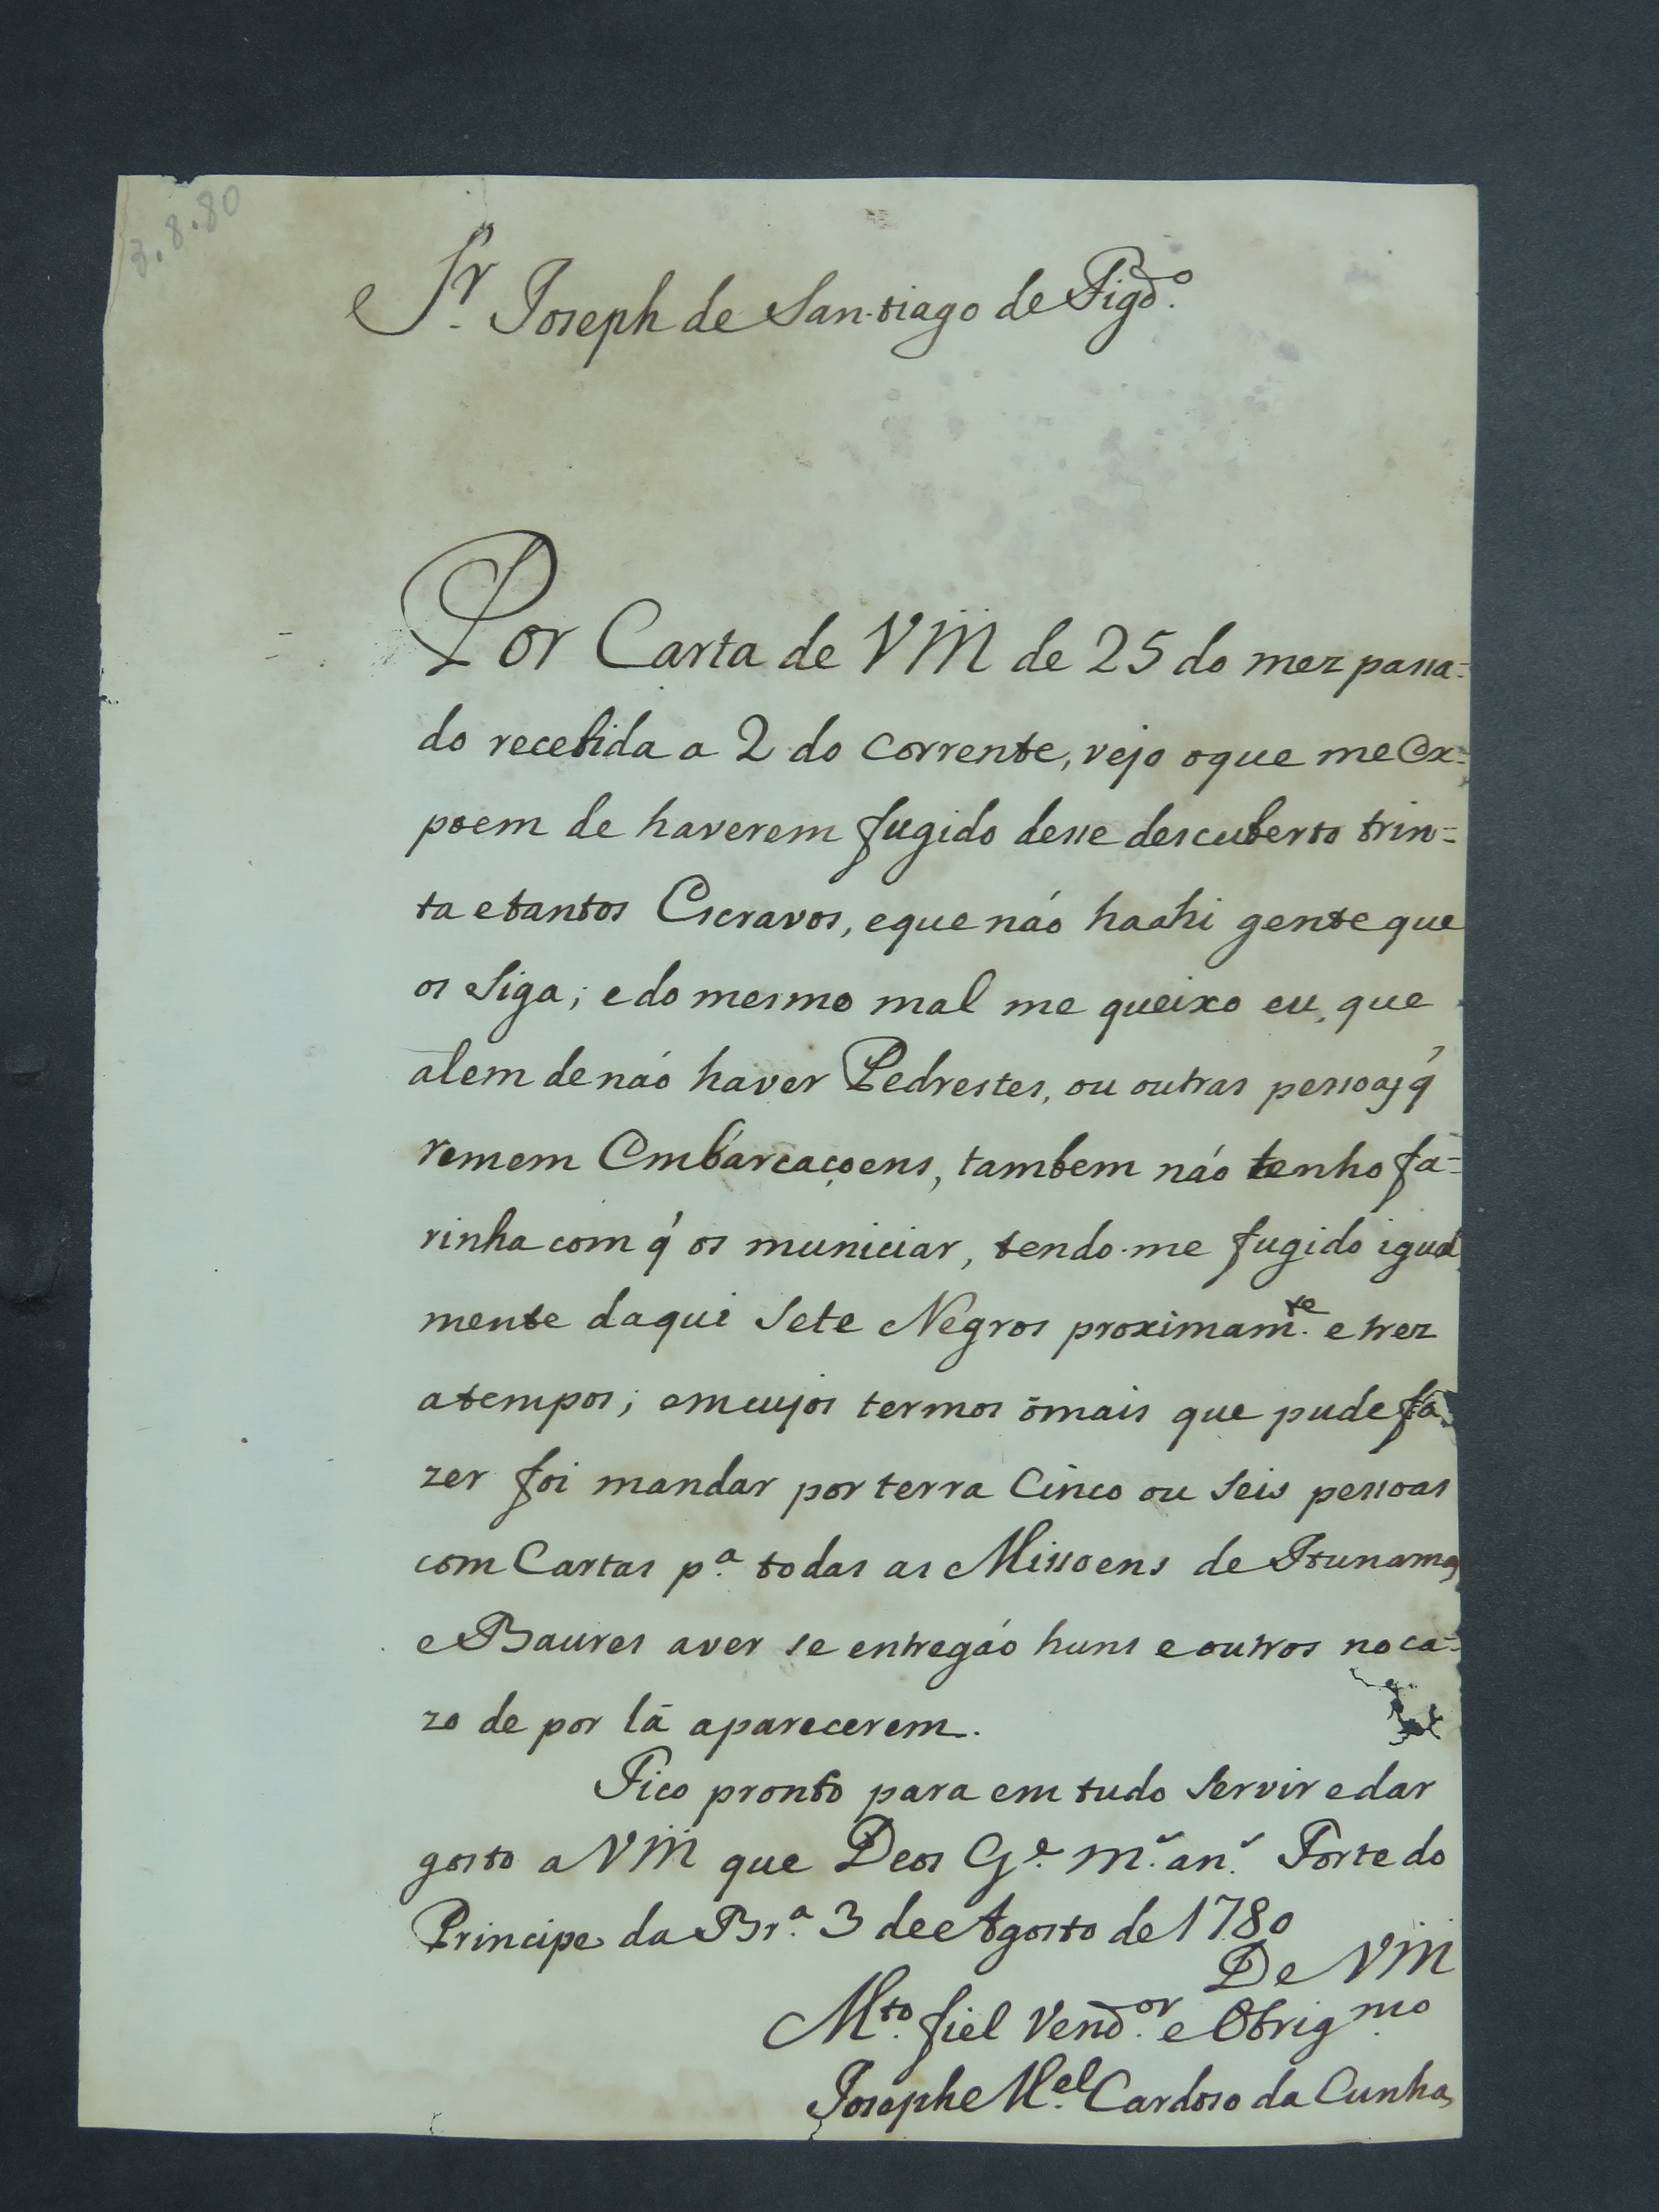 3.8.80
Sr. Joseph de San-tiago de Figdo.
Por Carta de VM de 25 do mez passa=
do recebida a 2 do corrente, vejo oque me Ex=
poem de haverem fugido desse descuberto trin=
ta etantos Escravos, eque náo haahi gente que
os Siga; edo mesmo mal me queixo eu, que
alem denáo haver Pedrestes, ou outras pessoas q'
remem Embarcaçoens, tambem náo tenho fa=
rinha com q' os municiar, tendo-me fugido igual
mente daqui Sete Negros proximamte. e trez
atempos; emcujos termos ómais que pude fa
zer foi mandar por terra Cinco ou Seis pessoas
com Cartas pa. todas as Missoens de Itunamas
e Baures aver se entregáo huns eoutros noca=
zo de por lá aparecerem.
Fico pronto para em tudo Servir edar
gosto a VM que Deos Ge. ms. ans. Forte do
Principe da Bra. 3 de Agosto de 1780
De VM
Mto. fiel Vendor. e Obrigmo
Joseph Mel. Cardoso da Cunha